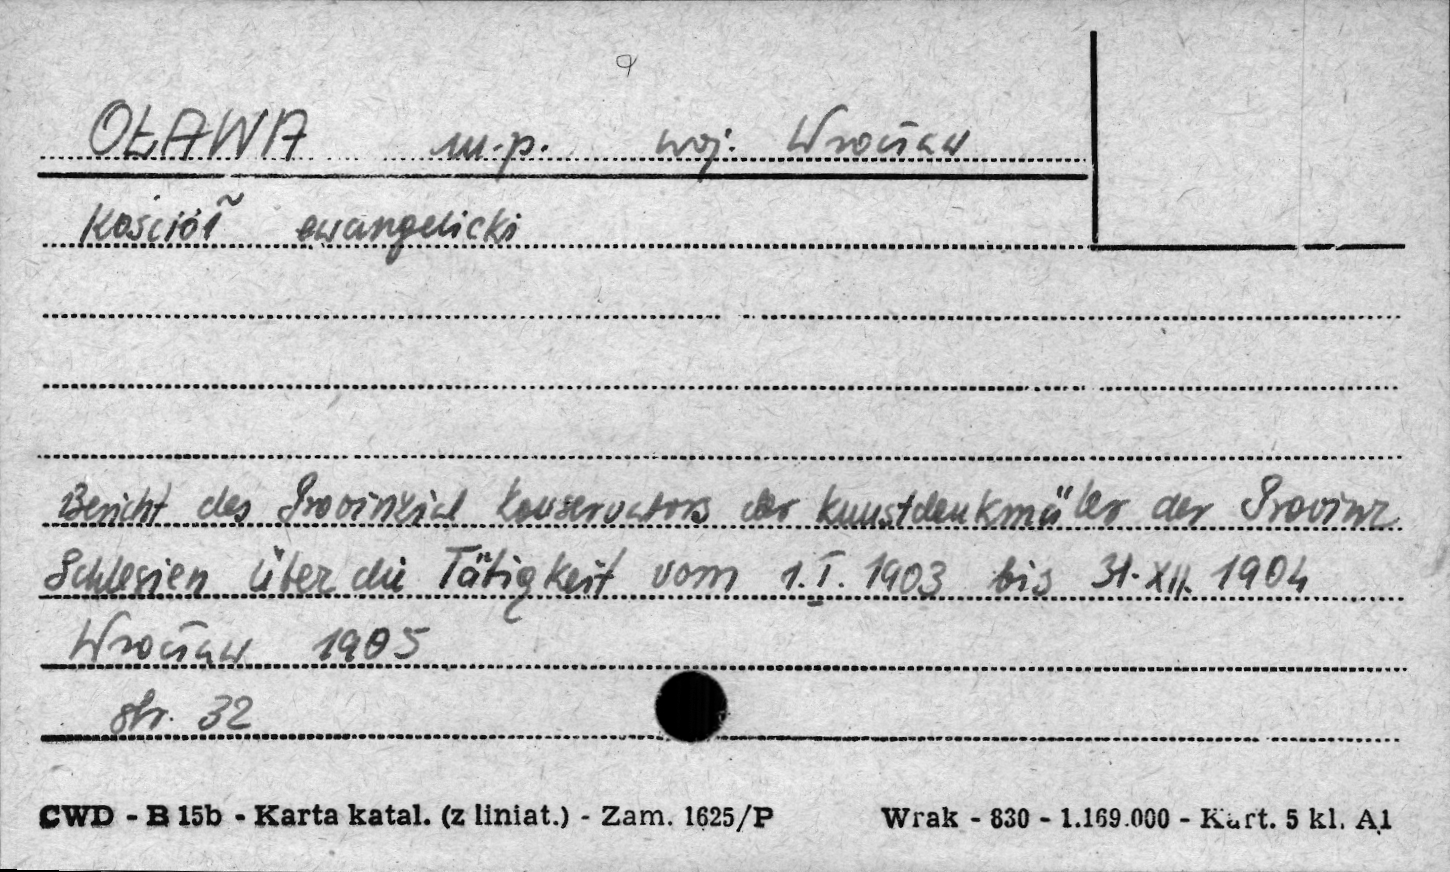 OŁAWA m.p. woj. Wrocław
Kościół ewangelicki
Bericht des Provinzial Konservators der Kunstdenkmäler der Provinz
Schlesien über die Tätigkeit vom 1.I. 1903 bis 31.XII. 1904
Wrocław 1905
str. 32
CWD - B 15b - Karta katal. (z liniat.) - Zam. 1625/P Wrak - 830 - 1.169.000 - Kart. 5 kl. A1